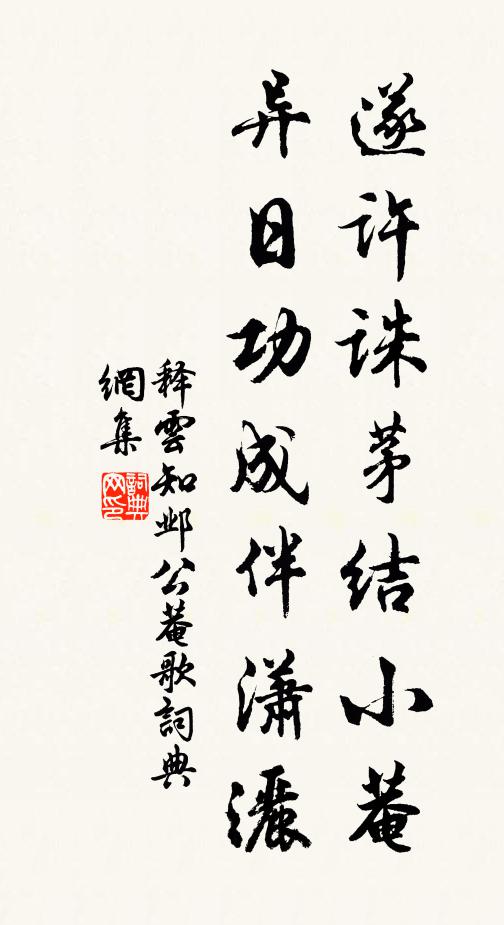 遂许诛茅结小菴
异日功成伴潇灑
释雲知邺公菴歌詞典
網集
詞典网印